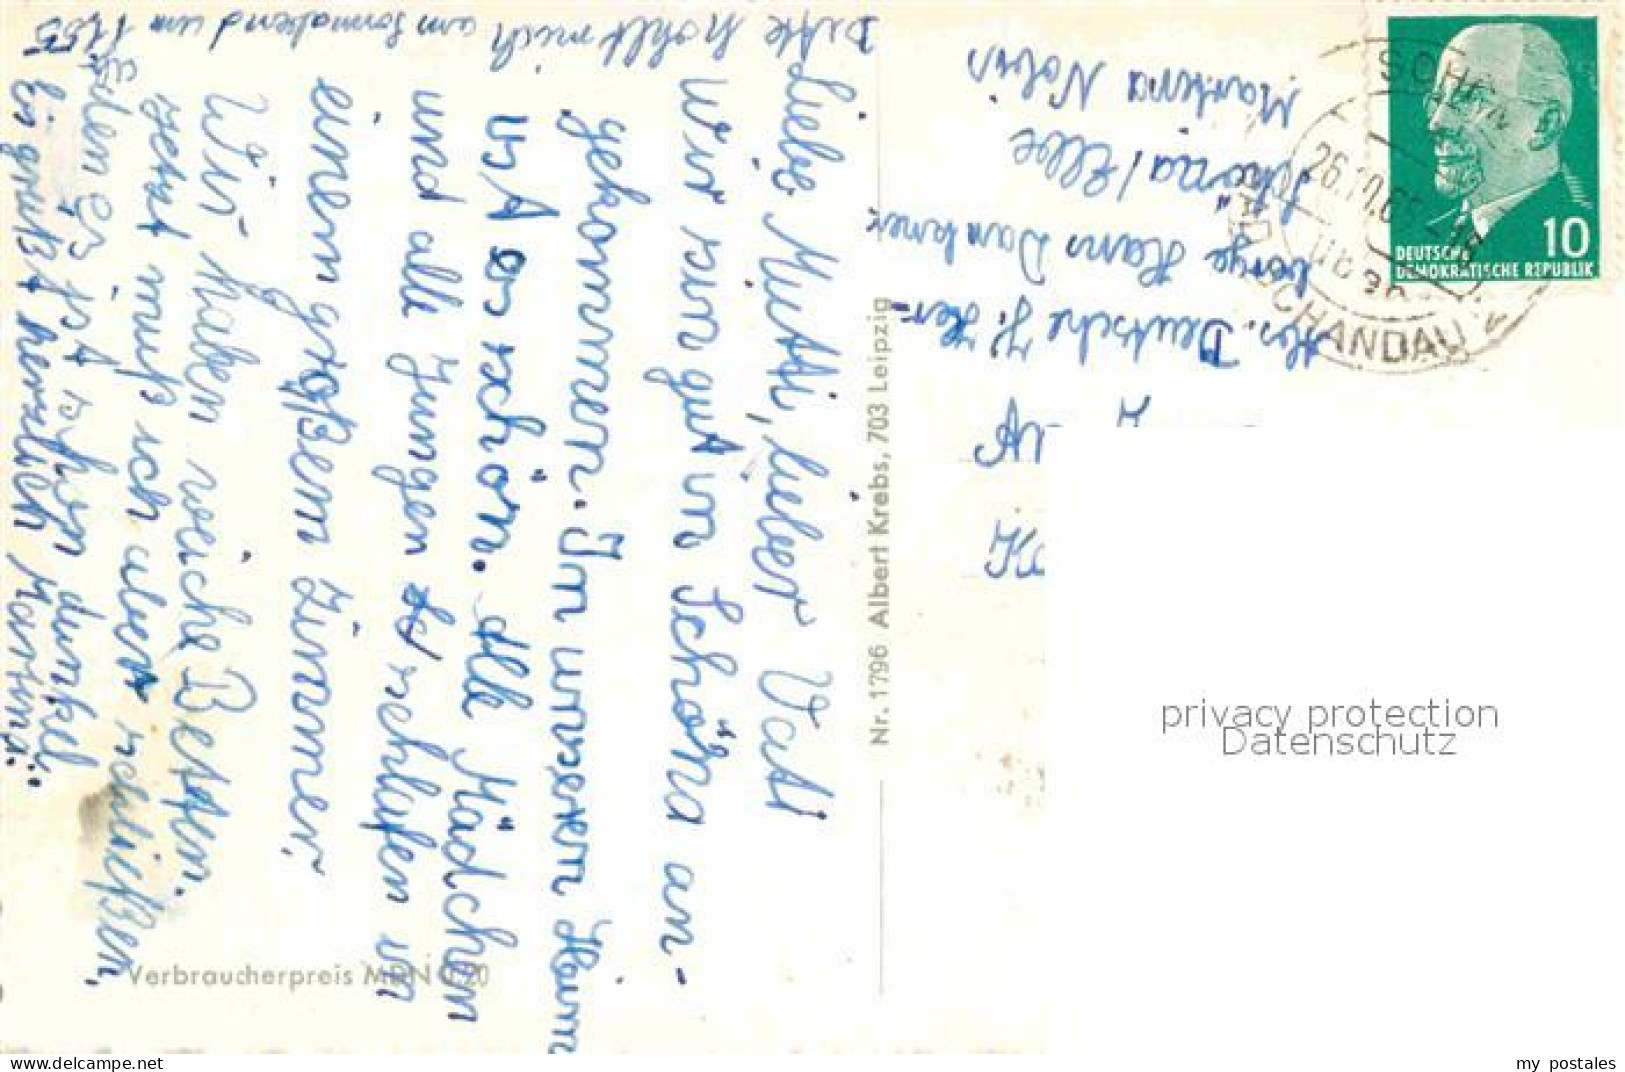 Liebe Mutti, lieber Vati
Wir sin gut in Schöna an-
gekommen. In unserem Heim
ist es schön. Alle Mädchen
und alle Jungen schlafen in
einem großem Zimmer.
Wir haben weiche Betten.
Jetzt muß ich aber schließen,
denn es ist schon dunkel.
Es grüßt herzlich Martina
Bitte hohlt mich am Sonnabend um 11.55
Martina Nobis
Schöna / Elbe
berge Hans Dankner
Abs. Deutsche J. Her-
SCHÖNA
26.10.65
BAD SCHANDAU 2
10
DEUTSCHE
DEMOKRATISCHE REPUBLIK
Nr. 1796 Albert Krebs, 703 Leipzig
Verbraucherpreis MDN 0,20
privacy protection
Datenschutz
my postales